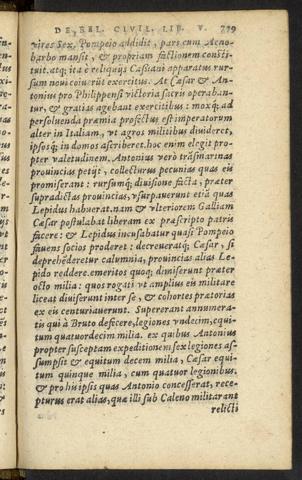 DE BEL. CIVIL. LIB. V. 779
vires Sex. Pompeio addidit, pars cum Aeno-
barbo mansit, & propriam factionem consti-
tuit. atq; ita è reliquijs Caßiani apparatus rur-
sum noui coiuêre exercitus. At Cæsar & An-
tonius pro Philippensi victoria sacris operaban-
tur, & gratias agebant exercitibus: moxq; ad
persoluenda præmia profectus est imperatorum
alter in Italiam, vt agros militibus diuideret,
ipsosq; in domos ascriberet. hoc enim elegit pro-
pter valetudinem. Antonius verò trãsmarinas
prouincias petijt, collecturus pecunias quas eis
promiserant: rursumq; diuisione facta, præter
supradictas prouincias, vsurpauerunt etiã quas
Lepidus habuerat. nam & vlteriorem Galliam
Cæsar postulabat liberam ex præscripto patris
facere: & Lepidus incusabatur quasi Pompeio
fauens socios proderet: decreueratq; Cæsar, si
deprehẽderetur calumnia, prouincias alias Le-
pido reddere. emeritos quoq; dimiserunt præter
octo milia: quos rogati vt amplius eis militare
liceat diuiserunt inter se, & cohortes prætorias
ex eis centuriauerunt. Supererant annumera-
tis qui à Bruto defecere, legiones vndecim, equi-
tum quatuordecim milia. ex quibus Antonius
propter susceptam expeditionem sex legiones as-
sumpsit & equitum decem milia, Cæsar equi-
tum quinque milia, cum quatuor legionibus.
& pro his ipsis quas Antonio concesserat, rece-
pturus erat alias, quæ illi sub Caleno militarant
relicti